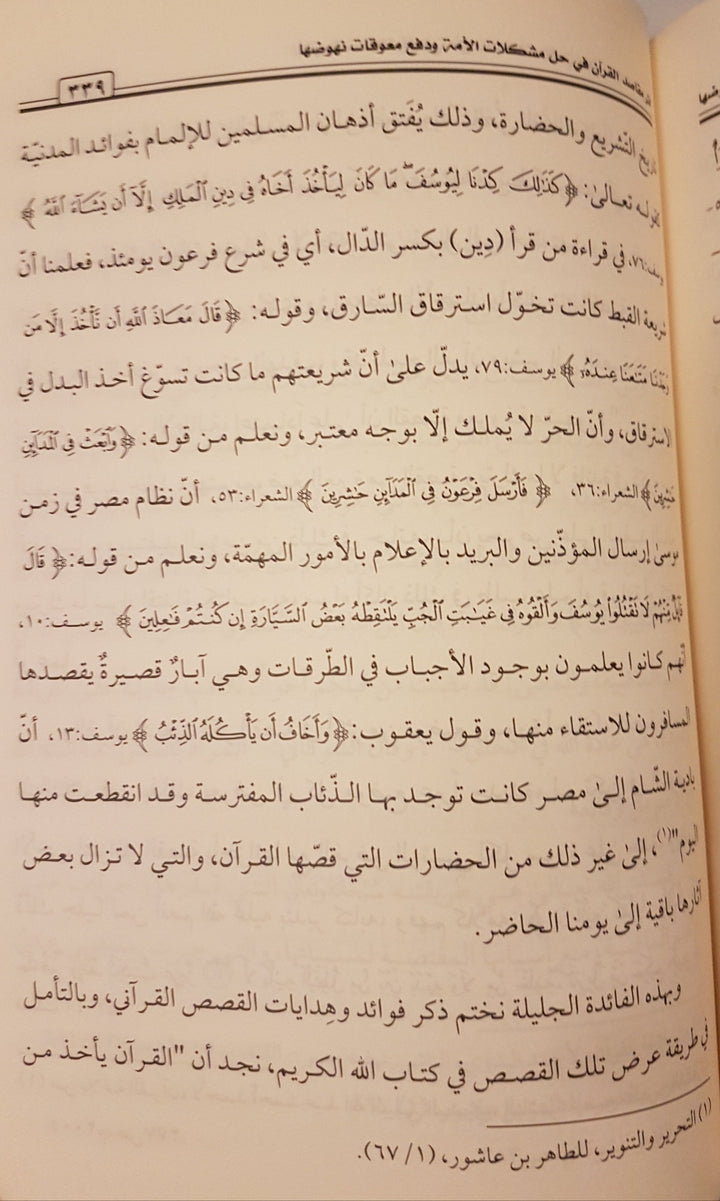 مقاصد القرآن في حل مشكلات الأمة ودفع معوقات نهوضها
٣٣٩
التّشريع والحضارة، وذلك يُفَتق أذهان المسلمين للإلمام بفوائد المدنيّة
تعالىٰ: ﴿كَذَٰلِكَ كِدْنَا لِيُوسُفَ ۖ مَا كَانَ لِيَأْخُذَ أَخَاهُ فِي دِينِ الْمَلِكِ إِلَّا أَن يَشَاءَ اللَّهُ﴾
٧٦، في قراءة من قرأ (دِين) بكسر الدّال، أي في شرع فرعون يومئذ، فعلمنا أنّ
شريعة القبط كانت تخوّل استرقاق السّارق، وقوله: ﴿قَالَ مَعَاذَ اللَّهِ أَن نَّأْخُذَ إِلَّا مَن
وَجَدْنَا مَتَاعَنَا عِندَهُ﴾ يوسف:٧٩، يدلّ علىٰ أنّ شريعتهم ما كانت تسوّغ أخذ البدل في
الاسترقاق، وأنّ الحرّ لا يُملك إلّا بوجه معتبر، ونعلم من قوله: ﴿وَابْعَثْ فِي الْمَدَائِنِ
حَاشِرِينَ﴾ الشعراء:٣٦، ﴿فَأَرْسَلَ فِرْعَوْنُ فِي الْمَدَائِنِ حَاشِرِينَ﴾ الشعراء:٥٣، أنّ نظام مصر في زمن
موسىٰ إرسال المؤذّنين والبريد بالإعلام بالأمور المهمّة، ونعلم من قوله: ﴿قَالَ
قَائِلٌ مِّنْهُمْ لَا تَقْتُلُوا يُوسُفَ وَأَلْقُوهُ فِي غَيَابَتِ الْجُبِّ يَلْتَقِطْهُ بَعْضُ السَّيَّارَةِ إِن كُنتُمْ فَاعِلِينَ﴾ يوسف:١٠،
أنهم كانوا يعلمون بوجود الأجباب في الطّرقات وهي آبارٌ قصيرةٌ يقصدها
المسافرون للاستقاء منها، وقول يعقوب: ﴿وَأَخَافُ أَن يَأْكُلَهُ الذِّئْبُ﴾ يوسف:١٣، أنّ
بادية الشّام إلىٰ مصر كانت توجد بها الذّئاب المفترسة وقد انقطعت منها
اليوم"(١)، إلىٰ غير ذلك من الحضارات التي قصّها القرآن، والتي لا تزال بعض
آثارها باقية إلىٰ يومنا الحاضر.
وبهذه الفائدة الجليلة نختم ذكر فوائد وهِدايات القصص القرآني، وبالتأمل
في طريقة عرض تلك القصص في كتاب الله الكريم، نجد أن "القرآن يأخذ من
(١) التحرير والتنوير، للطاهر بن عاشور، (١/ ٦٧).